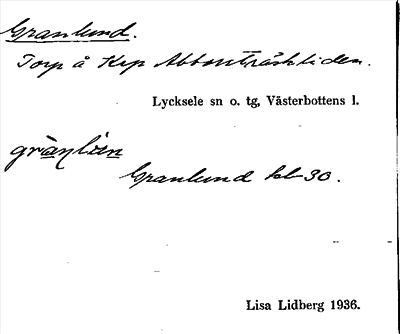 Granlund.
Torp å Krp Abborrträskliden.
Lycksele sn o. tg, Västerbottens l.
Granlund kl 30.
Lisa Lidberg 1936.